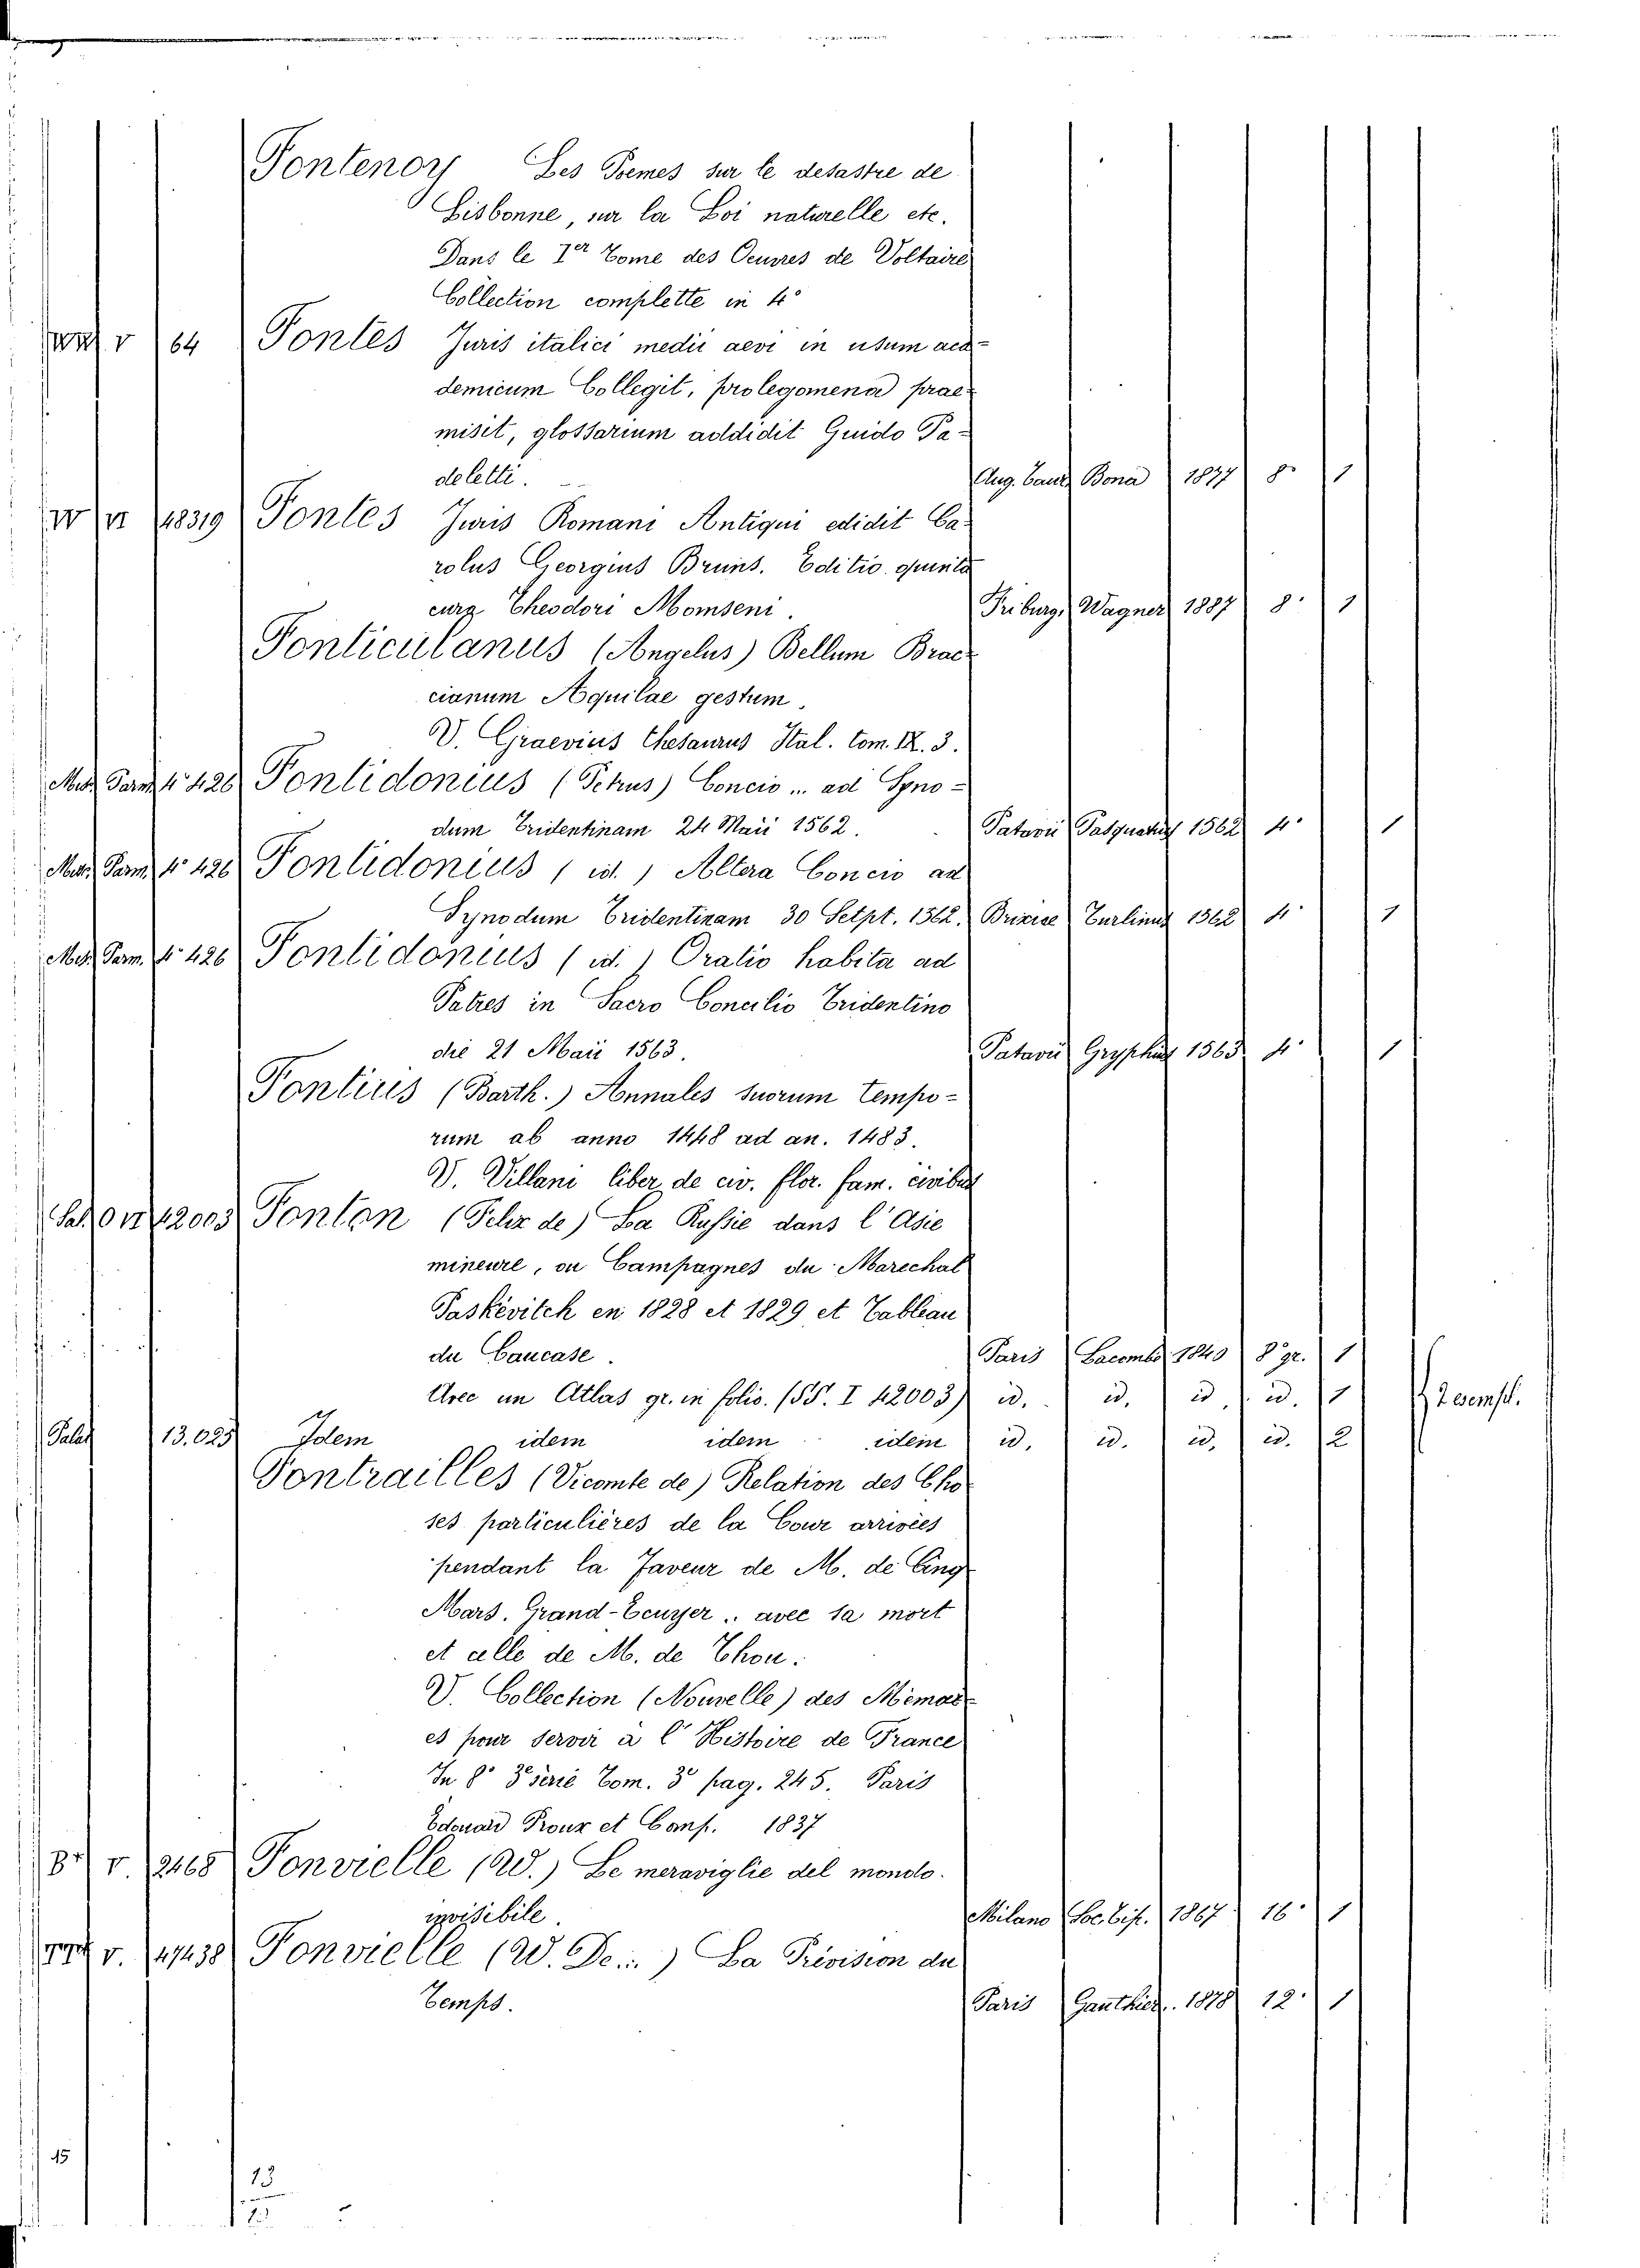 Fontenoy Les Poemes sur le desastre de
Lisbonne, sur la Loi naturelle etc.
Dans le 1er Tome des Oeuvres de Voltaire
Collection complette in 4°
V 64 Fontes Juris italici medii aevi in usum aca=
demicum Collegit, prolegomena prae=
misit, glossarium addidit Guido Pa=
deletti. Aug. Taur. Bona 1877 8° 1
VI 18319 Fontes Juris Romani Antiqui edidit Ca=
rolus Georgius Bruns. Editio quinta
cura Theodori Momseni. Friburg. Wagner 1887 8° 1
Fonticulanus (Angelus) Bellum Brac=
cianum Aquilae gestum.
V. Graevius Thesaurus Ital. tom. IX. 3.
Misc. Parm. 4° 426 Fontidonius (Petrus) Concio... ad Syno=
dum Tridentinam 24 Maii 1562. Patavii Pasquatus 1562 4° 1
Misc. Parm. 4° 426 Fontidonius (id.) Altera Concio ad
Synodum Tridentinam 30 Setpt. 1562. Brixiae Turlinus 1562 4° 1
Misc. Parm. 4° 426 Fontidonius (id.) Oratio habita ad
Patres in Sacro Concilio Tridentino
die 21 Maii 1563. Patavii Gryphius 1563 4° 1
Fontius (Barth.) Annales suorum tempo=
rum ab anno 1448 ad an. 1483.
V. Villani liber de civ. flor. fam. civibus
42003 Fonton (Felix de) La Russie dans l'Asie
mineure, ou Campagnes du Marechal
Paskévitch en 1828 et 1829 et Tableau
du Caucase. Paris Lacombe 1840 8° gr. 1
Avec un Atlas gr. in folio. (SS. I 42003) id. id. id. id. 1 2 esempl.
Palat 13.025 Idem idem idem idem id. id. id. id. 2
Fontrailles (Vicomte de) Relation des Cho=
ses particulières de la Cour arrivées
pendant la faveur de M. de Cinq
Mars, Grand-Ecuyer.. avec sa mort
et celle de M. de Thou.
V. Collection (Nouvelle) des Memoir=
es pour servir à l'Histoire de France
In 8° 3e serie Tom. 3° pag. 245. Paris
Edouard Proux et Comp. 1837
V. 2468 Fonvielle (W.) Le meraviglie del mondo
invisibile. Milano Soc. Tip. 1867 16° 1
V. 47438 Fonvielle (W. De...) La Prévision du
Temps. Paris Gauthier. 1878 12° 1
15
13